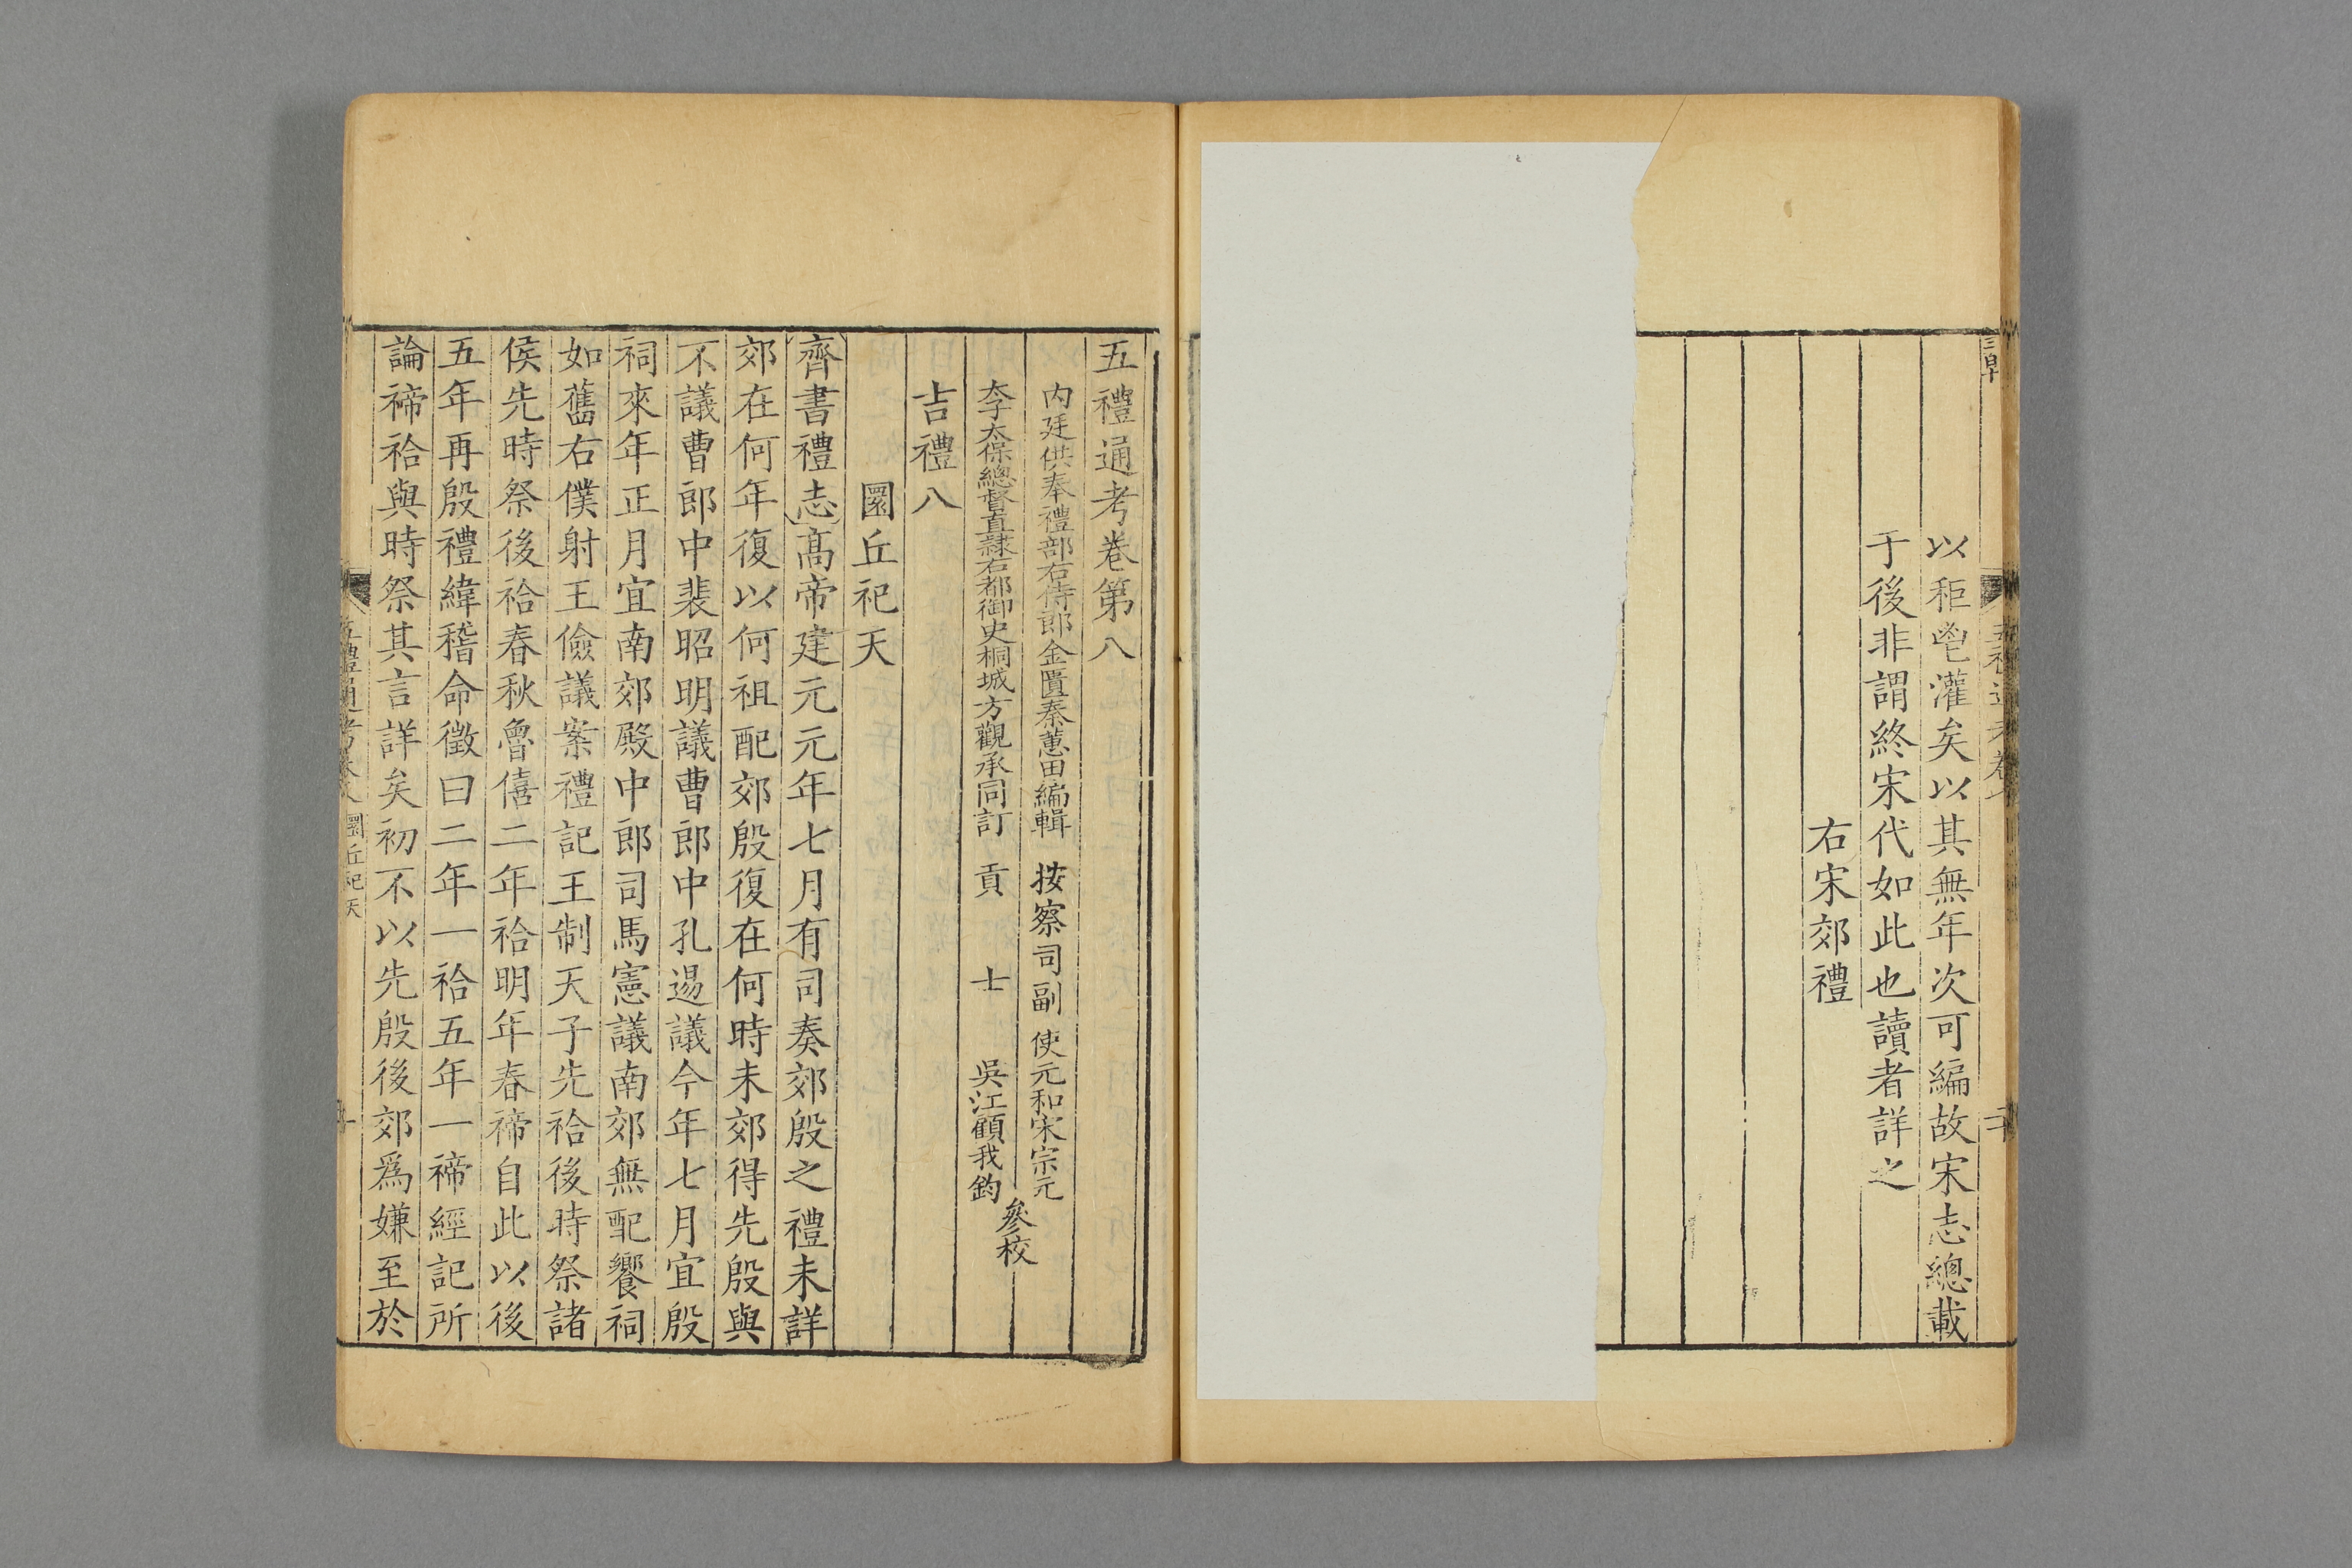 以秬鬯灌矣以其無年次可編故宋志總載
于後非謂終宋代如此也讀者詳之
右宋郊禮
五禮通考卷第八
内廷供奉禮部右侍郎金匱秦蕙田編輯 按察司副使元和宋宗元
太子太保總督直隸右都御史桐城方觀承同訂 貢士吳江顧我鈞
參校
吉禮八
圜丘祀天
齊書禮志高帝建元元年七月有司奏郊殷之禮未詳
郊在何年復以何祖配郊殷復在何時未郊得先殷與
不議曹郎中裴昭明議曹郎中孔逷議今年七月宜殷
祠來年正月宜南郊殿中郎司馬憲議南郊無配饗祠
如舊右僕射王儉議案禮記王制天子先祫後時祭諸
侯先時祭後祫春秋魯僖二年祫明年春禘自此以後
五年再殷禮緯稽命徵曰二年一祫五年一禘經記所
論禘祫與時祭其言詳矣初不以先殷後郊爲嫌至於
五禮通考卷八 圜丘祀天